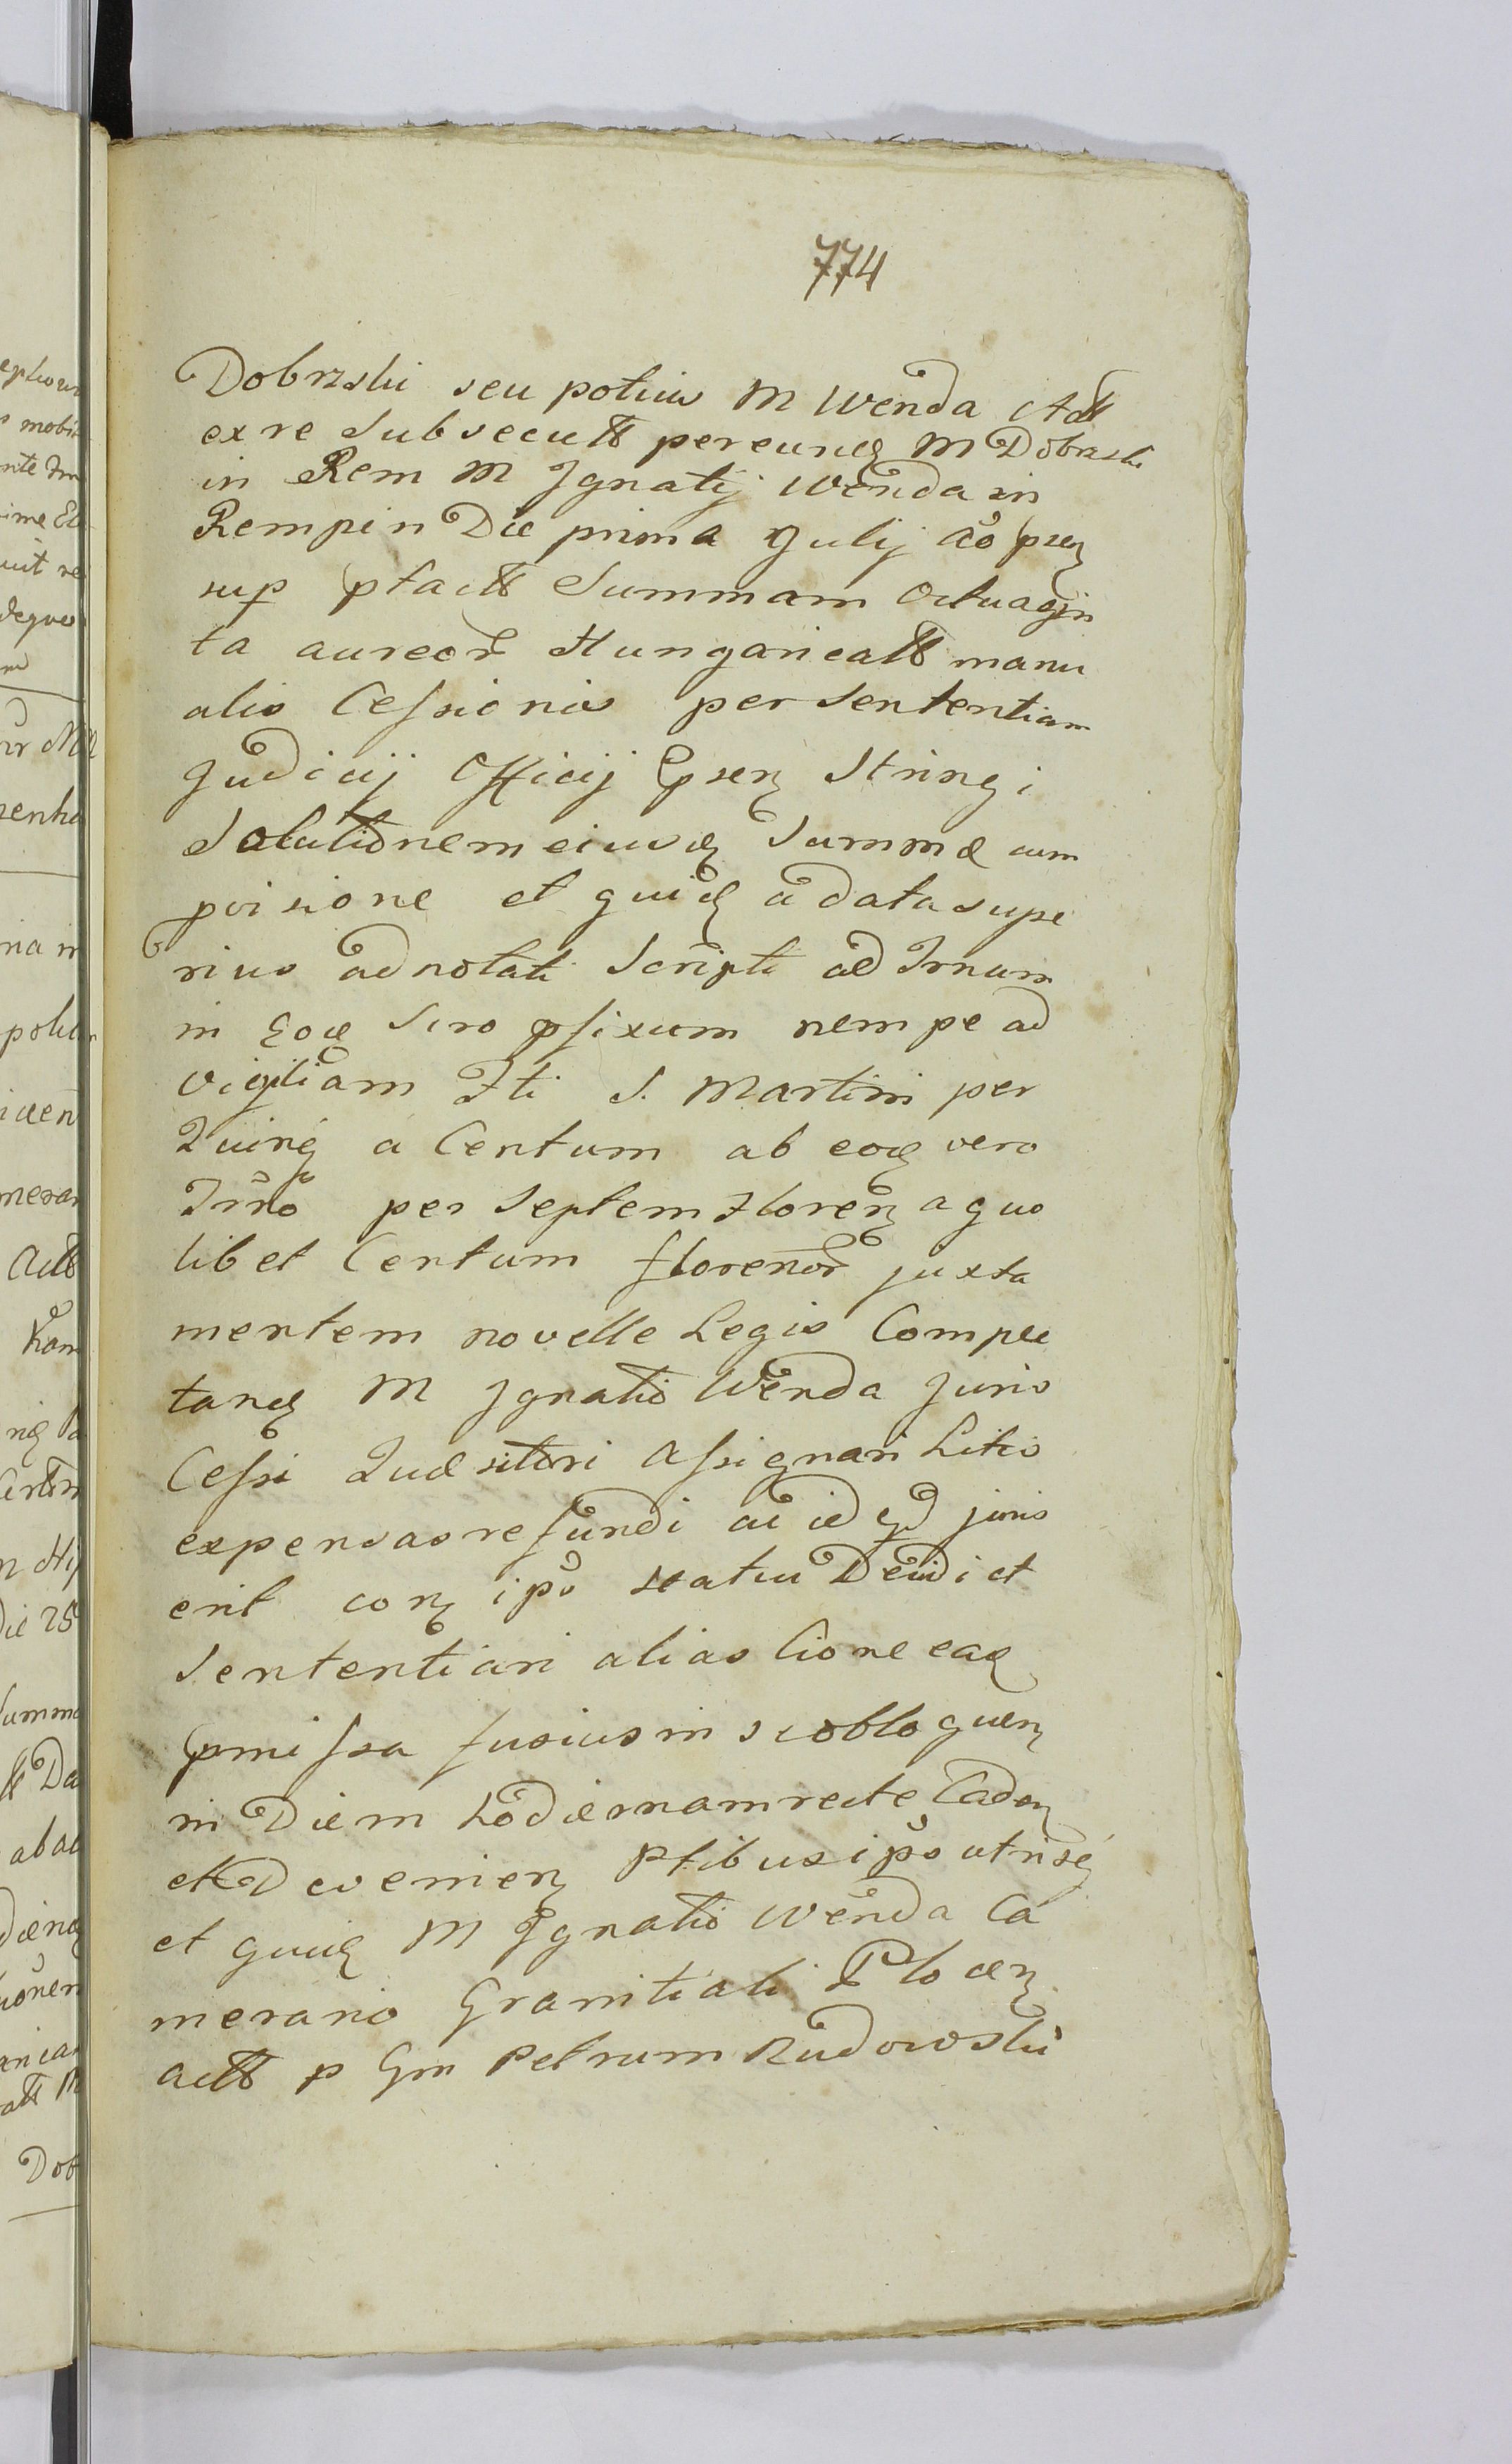 774
Dobrzski seu potius M Wenda Actt
ex re Subsecutt per eund M Dobrzski
in Rem M Ignatij Wenda in
Rempin Die prima Julij Ao psen
sup ptactt Summam Octuagin
ta aureor Hungaricatt manu
alis Cessionis per Sententiam
Judicij Officij psen Stringi
Solutionem eiusd Summæ cum
pvisione et quid a data supe
rius adnotati Scripti ad Trnum
in eod Scro pfixum nempe ad
vigiliam Fti S. Martini per
Quinq a Centum ab eod vero
Trno per Septem Floren a quo
libet Centum florenor juxta
mentem novelle Legis Compu
tand M Ignatio Wenda Juris
Cessi Quæsitori Assignari Litis
expensas refundi ac id qd juris
erit corn ipo statui Decidi et
Sententiari alias Cione ead
pmissa fusius in se obloquen
in Diem hodiernam recte Caden
et Devenien Ptibus ipo utrisq
et quid M Ignatio Wenda Ca
merario Granitiali Plocen
actt p Gm Petrum Rudowski